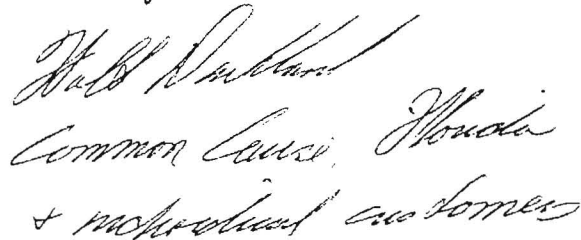 Walt Dartland
Common Cause, Florida
+ individual customers